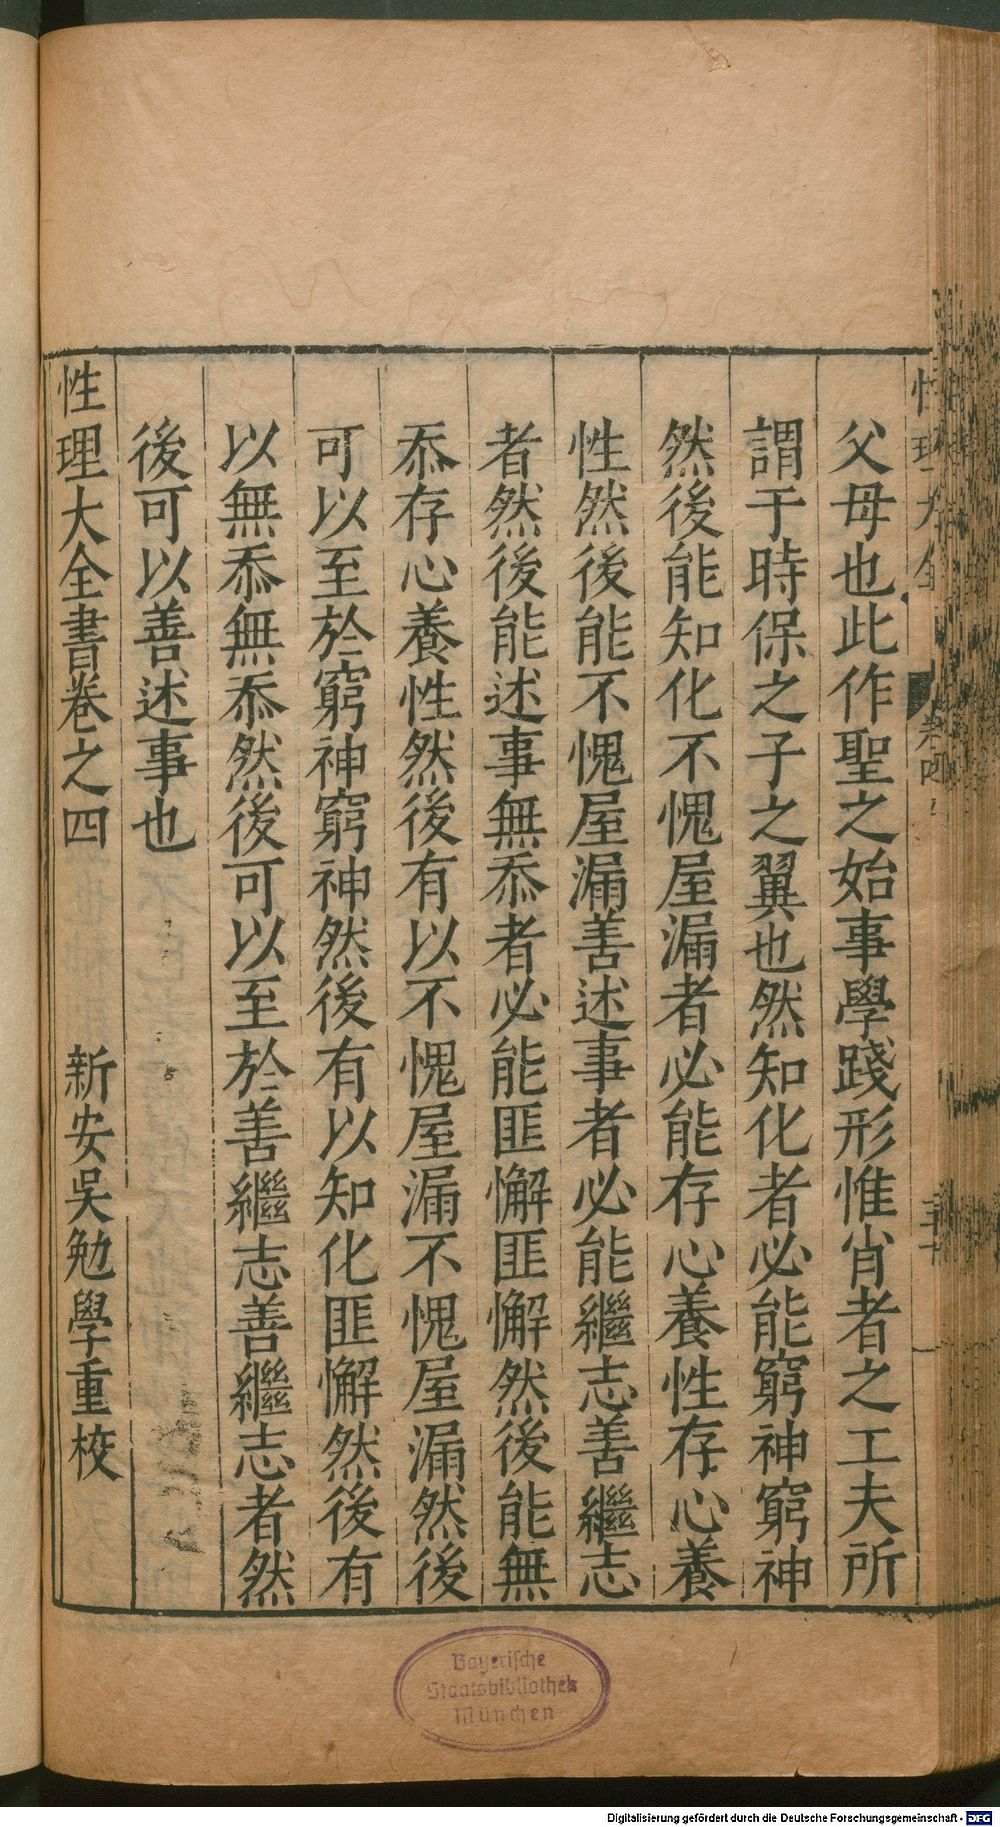 父母也此作聖之始事學踐形惟肖者之工夫所
謂于時保之子之翼也然知化者必能窮神窮神
然後能知化不愧屋漏者必能存心養性存心養
性然後能不愧屋漏善述事者必能繼志善繼志
者然後能述事無忝者必能匪懈匪懈然後能無
忝存心養性然後有以不愧屋漏不愧屋漏然後
可以至於窮神窮神然後有以知化匪懈然後有
以無忝無忝然後可以至於善繼志善繼志者然
後可以善述事也
性理大全書卷之四 新安吳勉學重校
Bayerische
Staatsbibliothek
München
Digitalisierung gefördert durch die Deutsche Forschungsgemeinschaft - DFG